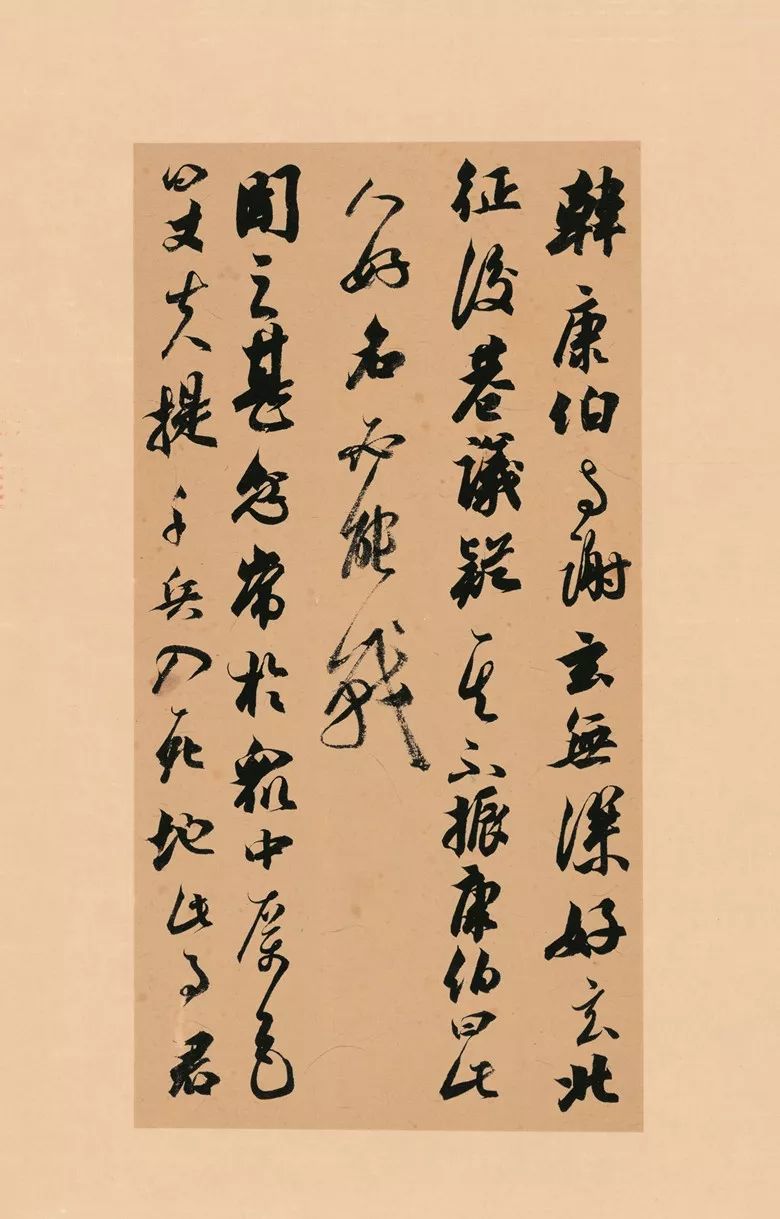 韓康伯与謝玄無深好玄北
征後巷議疑其不振康伯曰此
人好名必能戰
聞之甚忿常於衆中厲色
曰丈夫提千兵入死地以事君